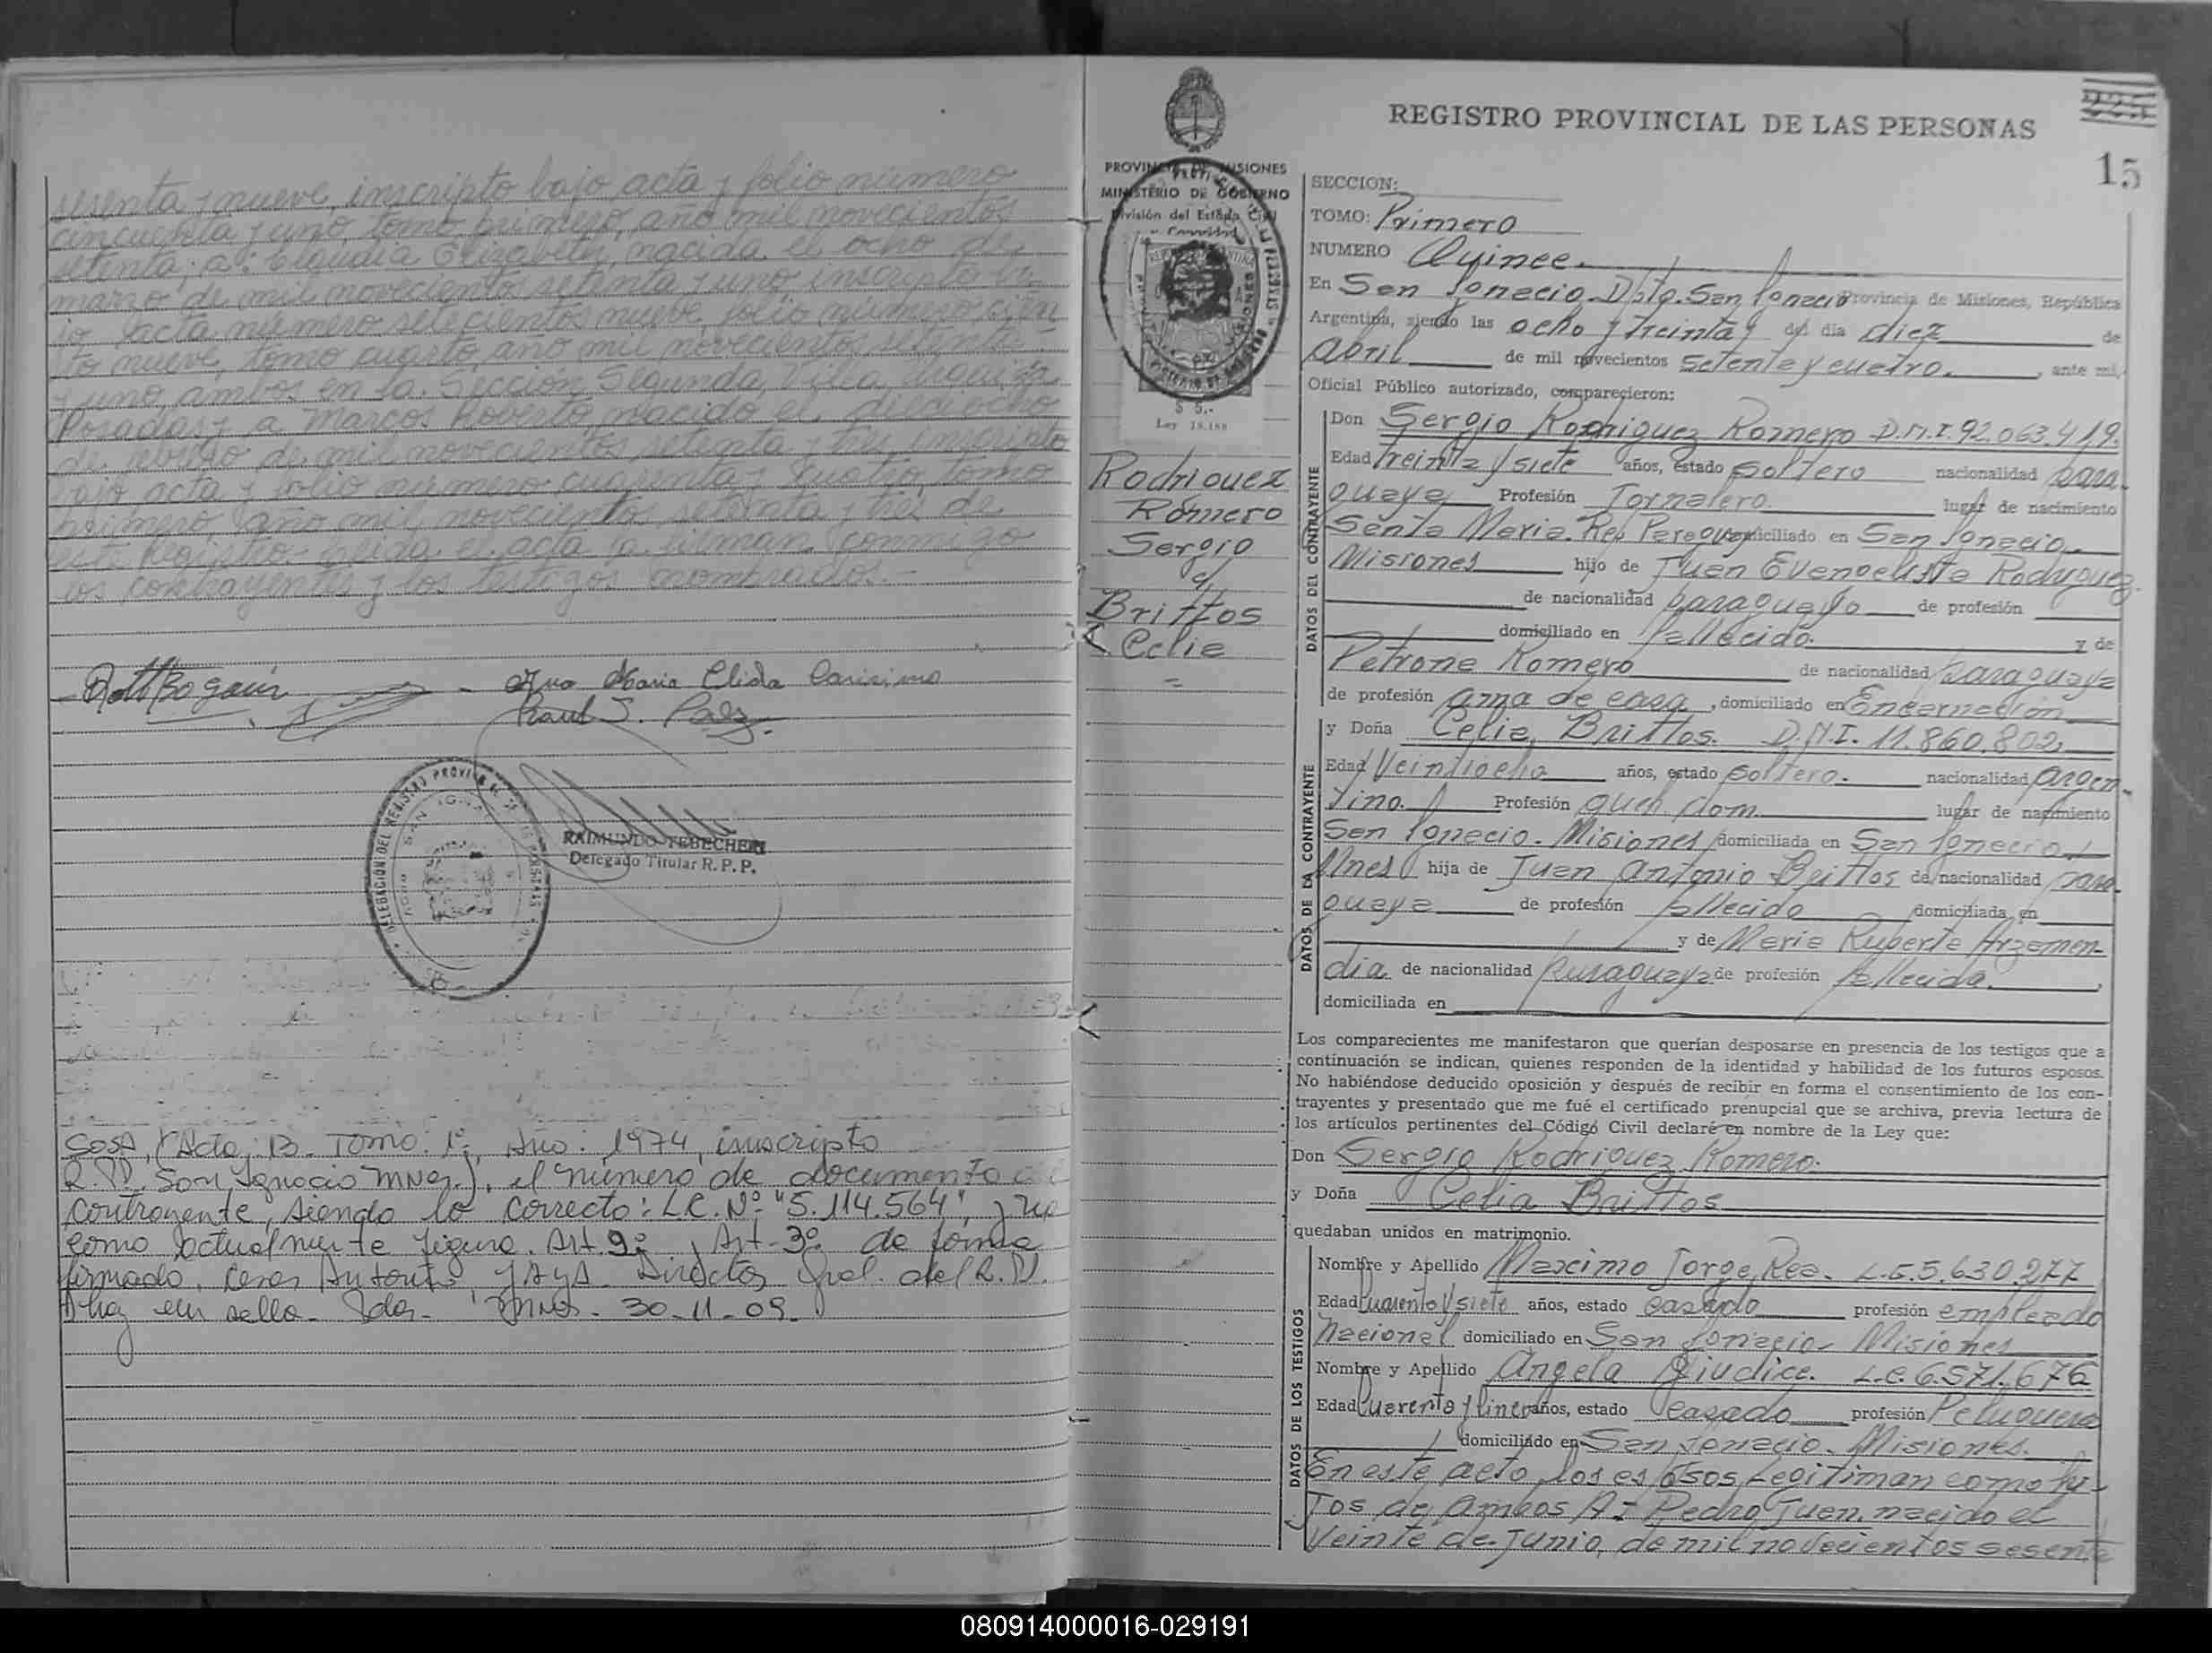 sesenta y nueve, inscripto bajo acta y folio número
cincuenta y uno, tomo primero, año mil novecientos
setenta; a: Claudia Elizabeth, nacida el ocho de
marzo de mil novecientos setenta y uno inscripta ba
jo acta número setecientos nueve, folio número cien
to nueve, tomo cuarto, año mil novecientos setenta
y uno, ambos en la Sección Segunda, Villa Urquiza
Posadas y a Marcos Roberto, nacido el dieciocho
de febrero de mil novecientos setenta y tres inscripto
bajo acta y folio número cuarenta y cuatro, tomo
primero, año mil novecientos setenta y tres de
este Registro. Leida el acta la firman conmigo
los contrayentes y los testigos nombrados.-
Maria Elida
Raul S. Paez.
DELEGACIÓN DEL REGISTRO PROVINCIAL DE LAS PERSONAS
SAN IGNACIO
RAIMUNDO TEBECHERI
Delegado Titular R.P.P.
Sosa, (Acta: 13. Tomo: 1º; Año: 1974, inscripto
R.P. San Ignacio Mnes.), el número de documento
contrayente, siendo lo correcto: L.C. Nº "5.114.564", y no
como actualmente figura. Art. 9º, Art. 3º de forma
firmado, Cesar Antonio Director Gral. del R.P.
Hay un sello. Pdas. Mnes. 30-11-09.
REGISTRO PROVINCIAL DE LAS PERSONAS
225
15
PROVINCIA DE MISIONES
MINISTERIO DE GOBIERNO
División del Estado Civil
y Capacidad
$ 5.-
Ley 18.188
Rodriguez
Romero
Sergio
c/
Brittos
Celia
=
SECCION:
TOMO: Primero
NUMERO Quince.
En San Ignacio. Dpto. San Ignacio Provincia de Misiones, República
Argentina, siendo las ocho y treinta del día diez de
Abril de mil novecientos setenta y cuatro. , ante mí,
Oficial Público autorizado, comparecieron:
DATOS DEL CONTRAYENTE
Don Sergio Rodriguez Romero D.N.I. 92.063.419.
Edad Treinta y siete años, estado soltero nacionalidad para-
guaya Profesión Jornalero. lugar de nacimiento
Santa Maria. Rep. Paraguay domiciliado en San Ignacio.
Misiones hijo de Juan Evangelista Rodriguez.
de nacionalidad paraguayo de profesión
domiciliado en fallecido. y de
Petrona Romero de nacionalidad paraguaya
de profesión ama de casa , domiciliado en Encarnación
DATOS DE LA CONTRAYENTE
y Doña Celia Brittos. D.N.I. 11.860.802.
Edad Veintiocho años, estado soltero. nacionalidad Argen-
tino. Profesión queh. dom. lugar de nacimiento
San Ignacio. Misiones domiciliada en San Ignacio.
Mnes hija de Juan Antonio Brittos de nacionalidad para-
guaya de profesión fallecido domiciliada en
y de Maria Ruperta Arzamen-
dia de nacionalidad paraguaya de profesión fallecida. ,
domiciliada en
Los comparecientes me manifestaron que querían desposarse en presencia de los testigos que a
continuación se indican, quienes responden de la identidad y habilidad de los futuros esposos.
No habiéndose deducido oposición y después de recibir en forma el consentimiento de los con-
trayentes y presentado que me fué el certificado prenupcial que se archiva, previa lectura de
los artículos pertinentes del Código Civil declaré en nombre de la Ley que:
Don Sergio Rodriguez Romero.
y Doña Celia Brittos
quedaban unidos en matrimonio.
DATOS DE LOS TESTIGOS
Nombre y Apellido Maximo Jorge Rea. L.E. 5.630.277
Edad Cuarenta y siete años, estado casado profesión empleado
Nacional domiciliado en San Ignacio- Misiones
Nombre y Apellido Angela Giudice. L.C. 6.571.676
Edad Cuarenta y cinco años, estado casado profesión Peluquera
domiciliado en San Ignacio. Misiones.
En este acto los esposos legitiman como hi-
jos de ambos A: Pedro Juan, nacido el
veinte de Junio, de mil novecientos sesenta
080914000016-029191